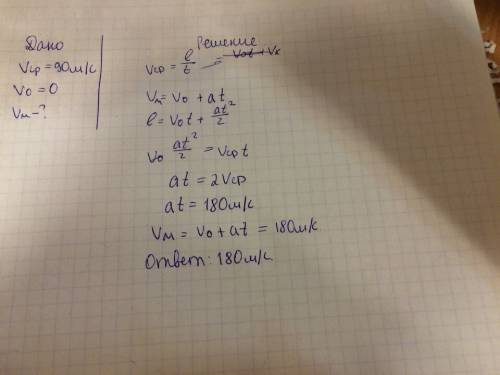 Дано
Vср = 90м/с
V0 = 0
Vм - ?
Решение
Vср = l/t =
Vм = V0 + at
l = V0t + at²/2
V0 at²/2 = Vср t
at = 2Vср
at = 180м/с
Vм = V0 + at = 180м/с
Ответ: 180м/с